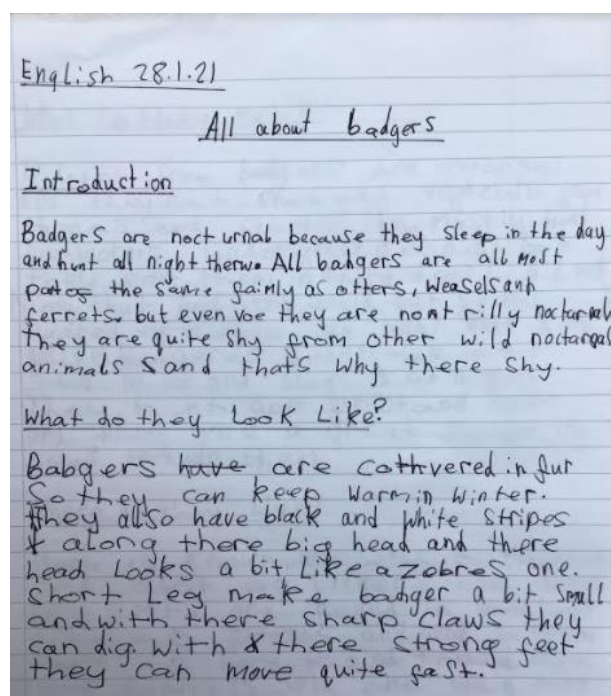 English 28.1.21
All about badgers
Introduction
Badgers are nocturnal because they sleep in the day
and hunt all night therw. All bahgers are all most
part of the same faimly as otters, weasels anh
ferrets. but even voe they are nont rilly noctarnal
they are quite shy from other wild noctargal
animals sand thats why there shy.
What do they Look Like?
Babgers have are cothvered in fur
So they can keep warm in winter.
They allso have black and white stripes
along there big head and there
head Looks a bit Like a zebres one.
Short Leg make badger a bit small
and with there sharp claws they
can dig. with & there strong feet
they can move quite fast.